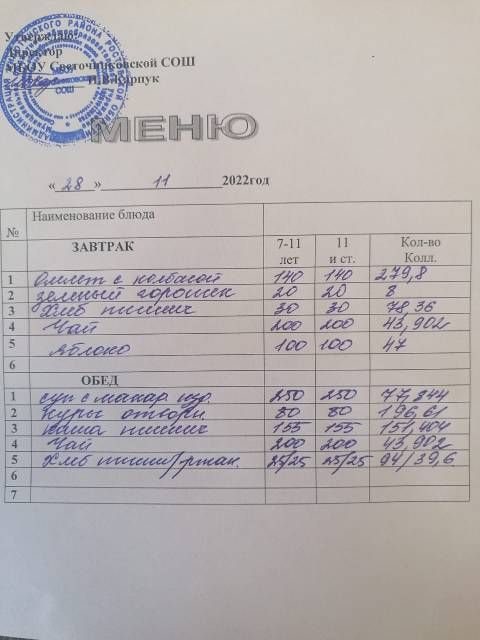 Утверждаю:
Директор
МБОУ Светочниковской СОШ
П.В.Карпук
МЕНЮ
« 28 » 11 2022год
№ Наименование блюда
ЗАВТРАК 7-11 лет 11 и ст. Кол-во Колл.
1 Омлет с колбасой 140 140 279,8
2 зеленый горошек 20 20 8
3 Хлеб пшенич 30 30 78,36
4 Чай 200 200 43,902
5 Яблоко 100 100 47
6
ОБЕД
1 суп с макар. изд. 250 250 77,344
2 куры отворн 80 80 196,61
3 каша пшенич 155 155 151,404
4 Чай 200 200 43,902
5 Хлеб пшен/ржан. 25/25 25/25 94/39,6
6
7